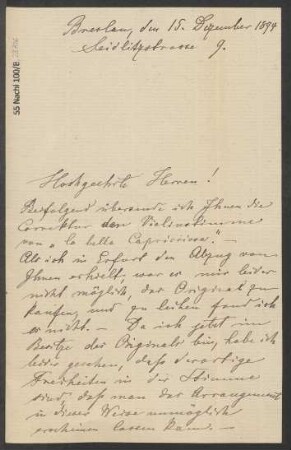 Breslau, den 15. Dezember 1894
Seidlitzstrasse 9.
55 Nachl 100/E
Hochgeehrte Herren!
Beifolgend übersende ich Ihnen die
Correktur der Violinstimme
von „la bella Capricciosa". –
Als ich in Erfurt den Abzug von
Ihnen erhielt, war es mir leider
nicht möglich, das Original zu
kaufen, und zu leihen fand ich
es nicht. – Da ich jetzt im
Besitze des Originals bin, habe ich
leider gesehen, daß derartige
Freiheiten in der Stimme
sind, daß man das Arrangement
in dieser Weise unmöglich
erscheinen lassen kann. –